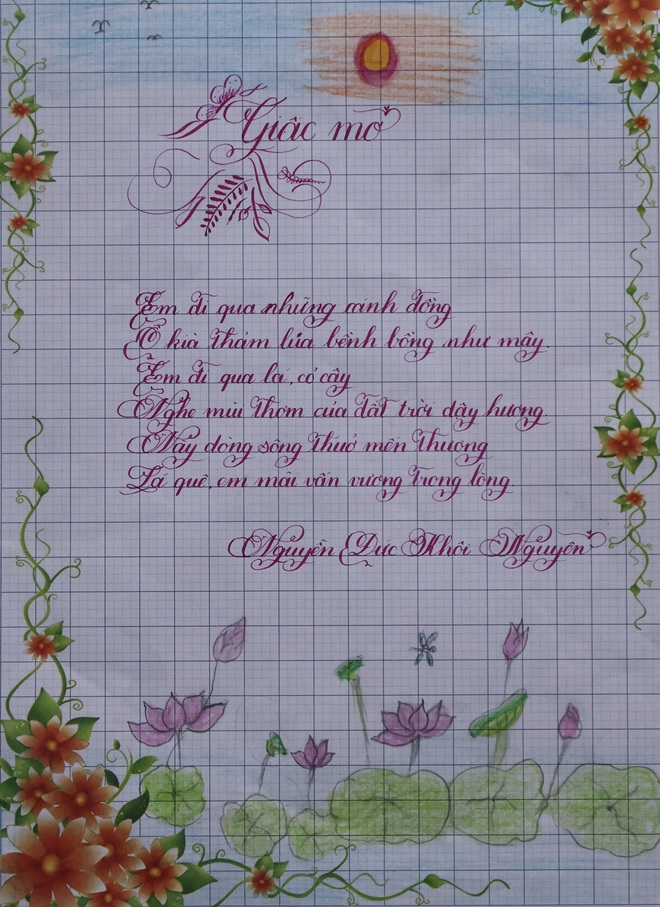 Giấc mơ
Em đi qua những cánh đồng
Ồ kìa thảm lúa bềnh bồng như mây.
Em đi qua lá, cỏ cây
Nghe mùi thơm của đất trời dậy hương.
Này dòng sông thuở mến thương
Lá quê, em mãi vấn vương trong lòng
Nguyễn Đức Khôi Nguyên